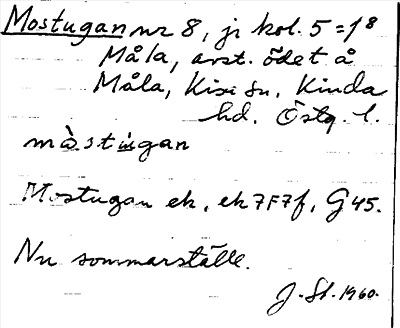 Mostugan nr 8, j. kol. 5 = 1⁸
Måla, avst. ödet å
Måla, Kisa sn, Kinda
hd. Östg. l.
mòstùgan
Mostugan ek, ek 7F7f, G45.
Nu sommarställe.
J. St. 1960.